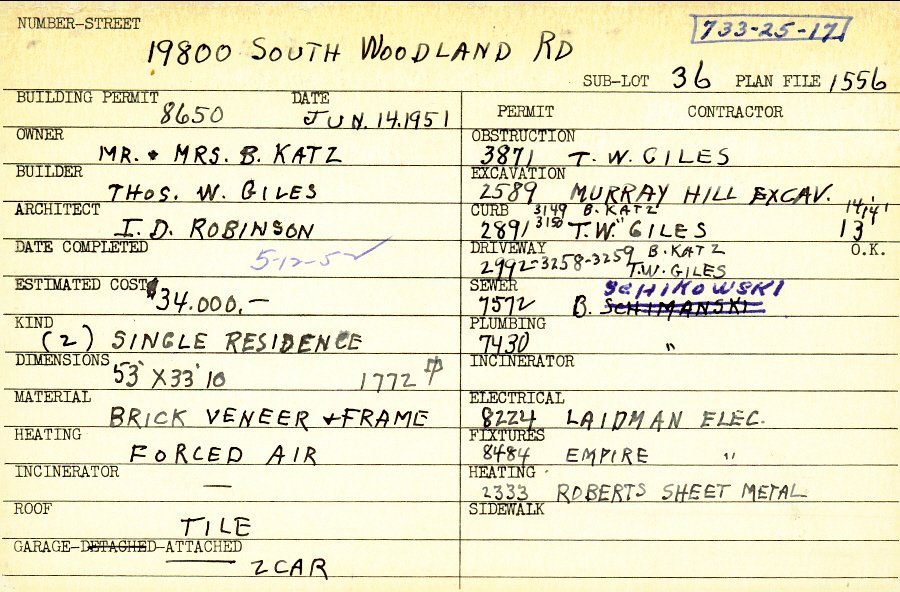 NUMBER-STREET
733-25-17
19800 SOUTH WOODLAND RD
SUB-LOT 36 PLAN FILE 1556
BUILDING PERMIT DATE
8650 JUN. 14. 1951
OWNER
MR. & MRS. B. KATZ
BUILDER
THOS. W. GILES
ARCHITECT
I. D. ROBINSON
DATE COMPLETED
5-12-52
ESTIMATED COST
$34.000.—
KIND
(2) SINGLE RESIDENCE
DIMENSIONS
53' X33'10 1772
MATERIAL
BRICK VENEER & FRAME
HEATING
FORCED AIR
INCINERATOR
—
ROOF
TILE
GARAGE-DETACHED-ATTACHED
2 CAR
PERMIT CONTRACTOR
OBSTRUCTION
3871 T. W. GILES
EXCAVATION
2589 MURRAY HILL EXCAV.
CURB 3149 B. KATZ 14'14'
2891 3150 T.W. GILES 13'
DRIVEWAY B. KATZ O.K.
2992-3258-3259 T.W. GILES
SEWER SCHIKOWSKI
7572 B. SCHIMANSKI
PLUMBING
7430 "
INCINERATOR
ELECTRICAL
8224 LAIDMAN ELEC.
FIXTURES
8484 EMPIRE "
HEATING
2333 ROBERTS SHEET METAL
SIDEWALK